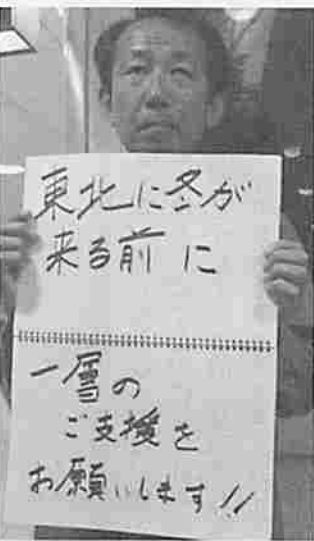 東北に冬が
来る前に
一層の
ご支援を
お願いします!!